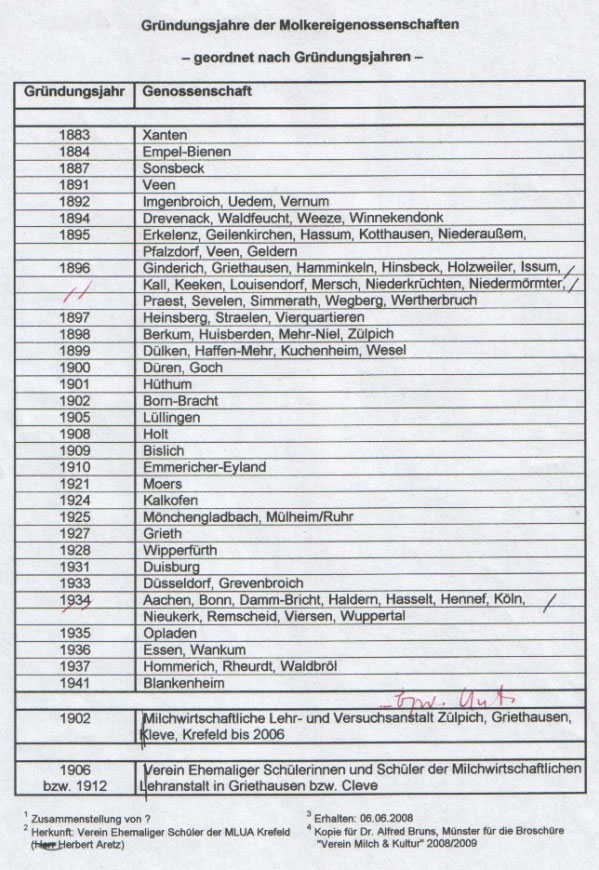 Gründungsjahre der Molkereigenossenschaften
– geordnet nach Gründungsjahren –
Gründungsjahr Genossenschaft
1883 Xanten
1884 Empel-Bienen
1887 Sonsbeck
1891 Veen
1892 Imgenbroich, Uedem, Vernum
1894 Drevenack, Waldfeucht, Weeze, Winnekendonk
1895 Erkelenz, Geilenkirchen, Hassum, Kotthausen, Niederaußem,
Pfalzdorf, Veen, Geldern
1896 Ginderich, Griethausen, Hamminkeln, Hinsbeck, Holzweiler, Issum,
Kall, Keeken, Louisendorf, Mersch, Niederkrüchten, Niedermörmter,
Praest, Sevelen, Simmerath, Wegberg, Wertherbruch
1897 Heinsberg, Straelen, Vierquartieren
1898 Berkum, Huisberden, Mehr-Niel, Zülpich
1899 Dülken, Haffen-Mehr, Kuchenheim, Wesel
1900 Düren, Goch
1901 Hüthum
1902 Born-Bracht
1905 Lüllingen
1908 Holt
1909 Bislich
1910 Emmericher-Eyland
1921 Moers
1924 Kalkofen
1925 Mönchengladbach, Mülheim/Ruhr
1927 Grieth
1928 Wipperfürth
1931 Duisburg
1933 Düsseldorf, Grevenbroich
1934 Aachen, Bonn, Damm-Bricht, Haldern, Hasselt, Hennef, Köln,
Nieukerk, Remscheid, Viersen, Wuppertal
1935 Opladen
1936 Essen, Wankum
1937 Hommerich, Rheurdt, Waldbröl
1941 Blankenheim
bzw.
1902 Milchwirtschaftliche Lehr- und Versuchsanstalt Zülpich, Griethausen,
Kleve, Krefeld bis 2006
1906 Verein Ehemaliger Schülerinnen und Schüler der Milchwirtschaftlichen
bzw. 1912 Lehranstalt in Griethausen bzw. Cleve
1 Zusammenstellung von ?
2 Herkunft: Verein Ehemaliger Schüler der MLUA Krefeld
(Herr Herbert Aretz)
3 Erhalten: 06.06.2008
4 Kopie für Dr. Alfred Bruns, Münster für die Broschüre
"Verein Milch & Kultur" 2008/2009